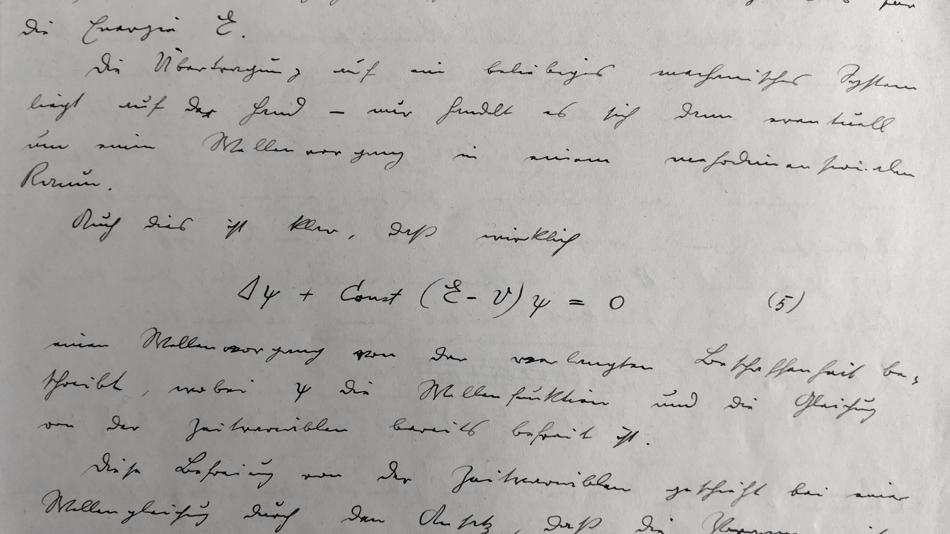 die Energie E.
Die Übertragung auf ein beliebiges mechanisches System
liegt auf der Hand – nur handelt es sich dann eventuell
um einen Wellenvorgang in einem mehrdimensionalen
Raum.
Auch dies ist klar, daß wirklich
Δψ + Const (E - V) ψ = 0 (5)
einen Wellenvorgang von der verlangten Beschaffenheit be-
schreibt, wobei ψ die Wellenfunktion und die Gleichung
von der Zeitvariablen bereits befreit ist.
Diese Befreiung von der Zeitvariablen geschieht bei einer
Wellengleichung durch den Ansatz, daß die